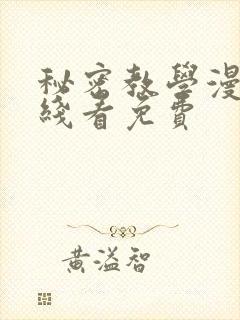 秘密教學漫
綫看免費
黃溢智